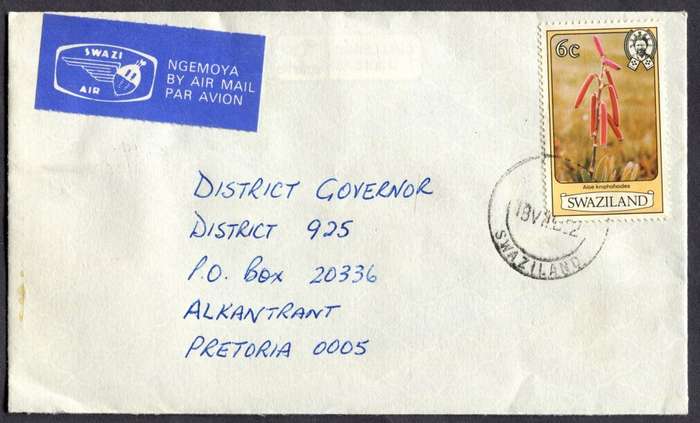 SWAZI
AIR
NGEMOYA
BY AIR MAIL
PAR AVION
6c
Aloe kniphofioides
SWAZILAND
SWAZILAND
DISTRICT GOVERNOR
DISTRICT 925
P.O. BOX 20336
ALKANTRANT
PRETORIA 0005